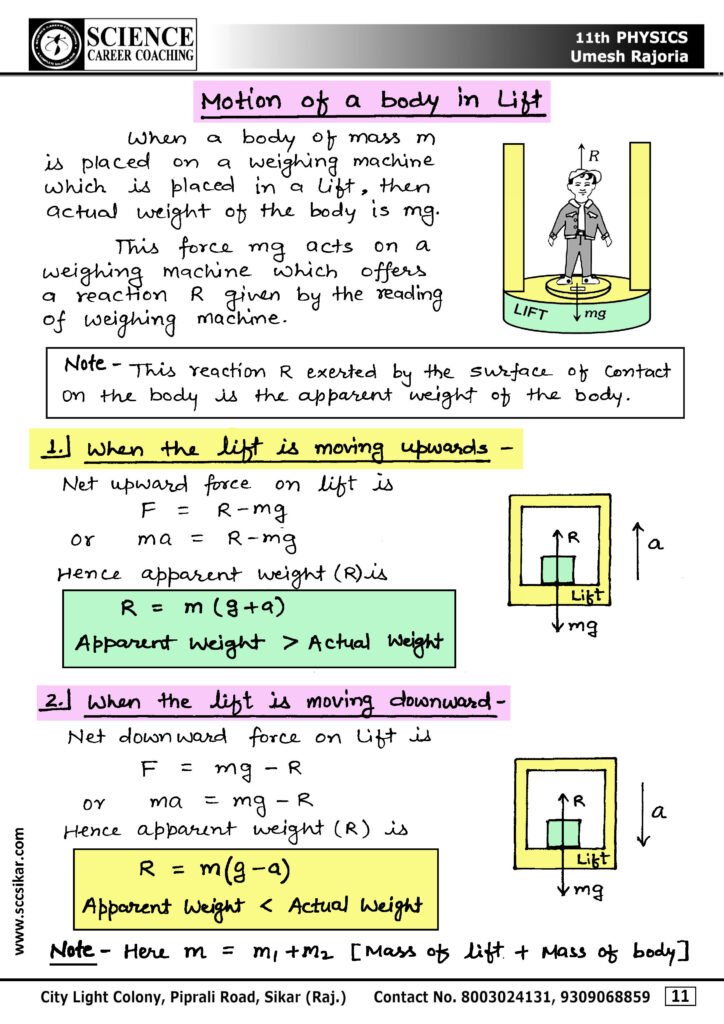 SCIENCE
CAREER COACHING
11th PHYSICS
Umesh Rajoria
Motion of a body in Lift
When a body of mass m
is placed on a weighing machine
which is placed in a lift, then
actual weight of the body is mg.
This force mg acts on a
weighing machine which offers
a reaction R given by the reading
of weighing machine.
R
LIFT
mg
Note - This reaction R exerted by the surface of contact
on the body is the apparent weight of the body.
1.] When the lift is moving upwards -
Net upward force on lift is
F = R-mg
or ma = R-mg
Hence apparent weight (R) is
R = m (g+a)
Apparent Weight > Actual Weight
R
a
Lift
mg
2.] When the lift is moving downward -
Net downward force on Lift is
F = mg - R
or ma = mg - R
Hence apparent weight (R) is
R = m(g-a)
Apparent Weight < Actual Weight
R
a
Lift
mg
Note - Here m = m₁+m₂ [Mass of lift + Mass of body]
www.sccsikar.com
City Light Colony, Piprali Road, Sikar (Raj.) Contact No. 8003024131, 9309068859 11